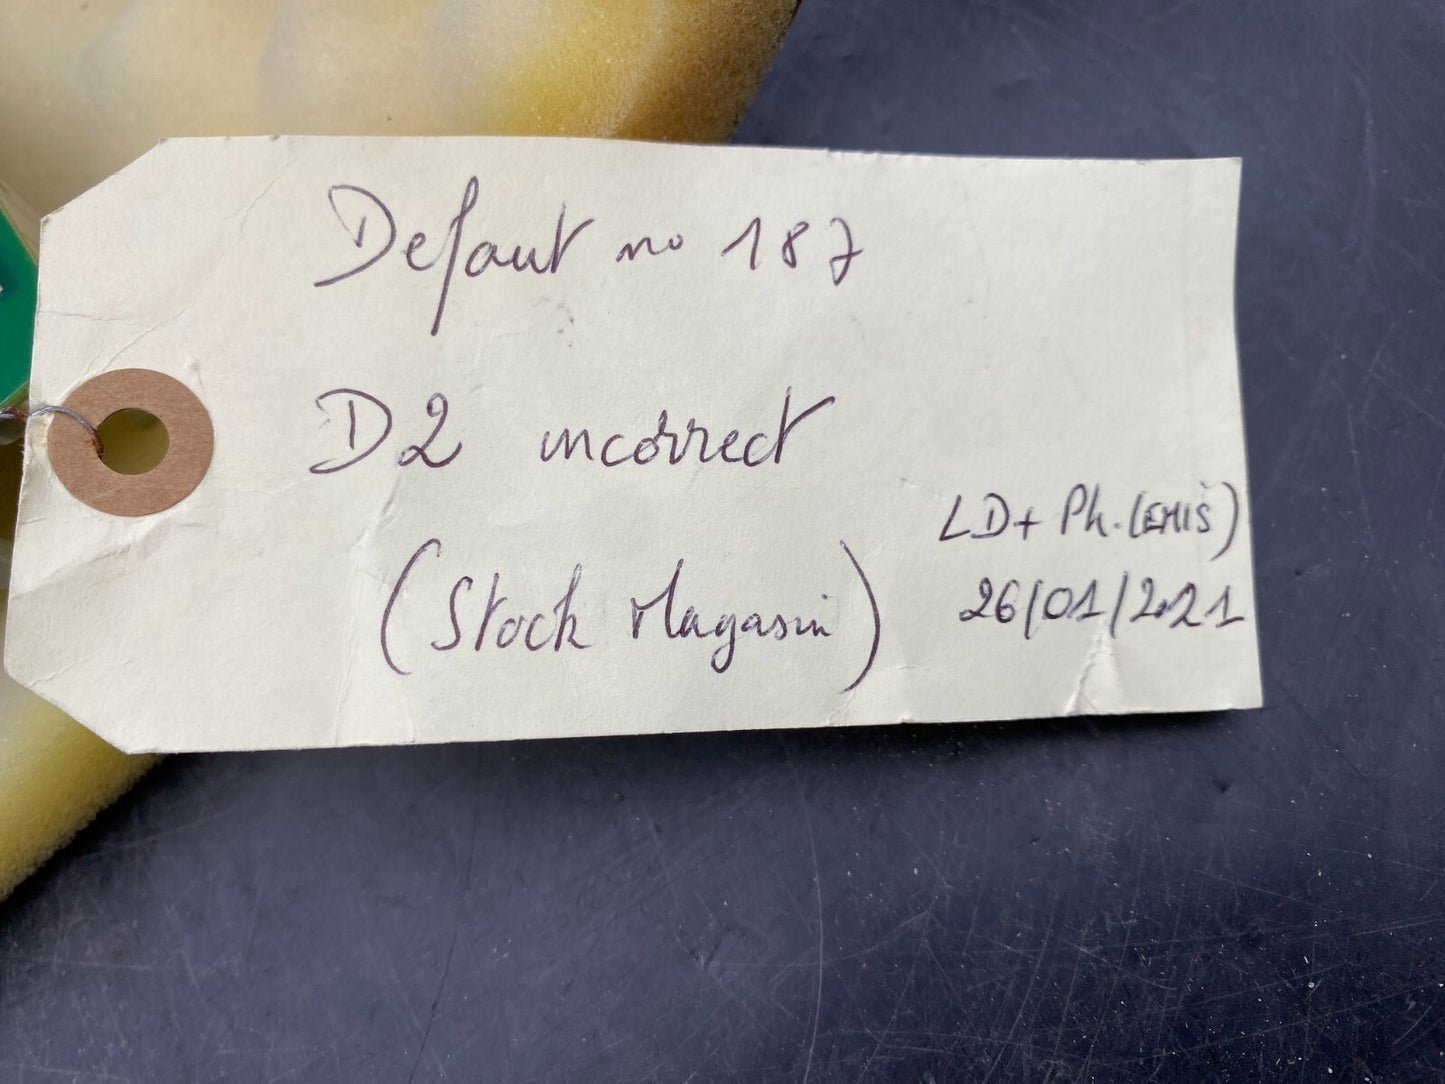 Defaut no 187
D2 incorrect
(Stock Magasin)
LD+ Ph. (EMIS)
26/01/2021